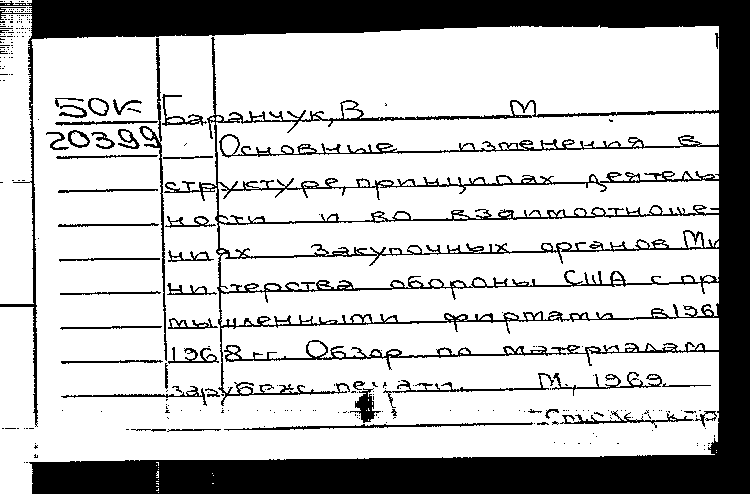 50К Баранчук, В М
20399 Основные изменения в
структуре, принципах деятель-
ности и во взаимоотноше-
ниях закупочных органов Ми
нистерства обороны США с про
мышленными фирмами в 1961
1968 гг. Обзор по материалам
зарубежс. печати. М., 1969
См след к-тр